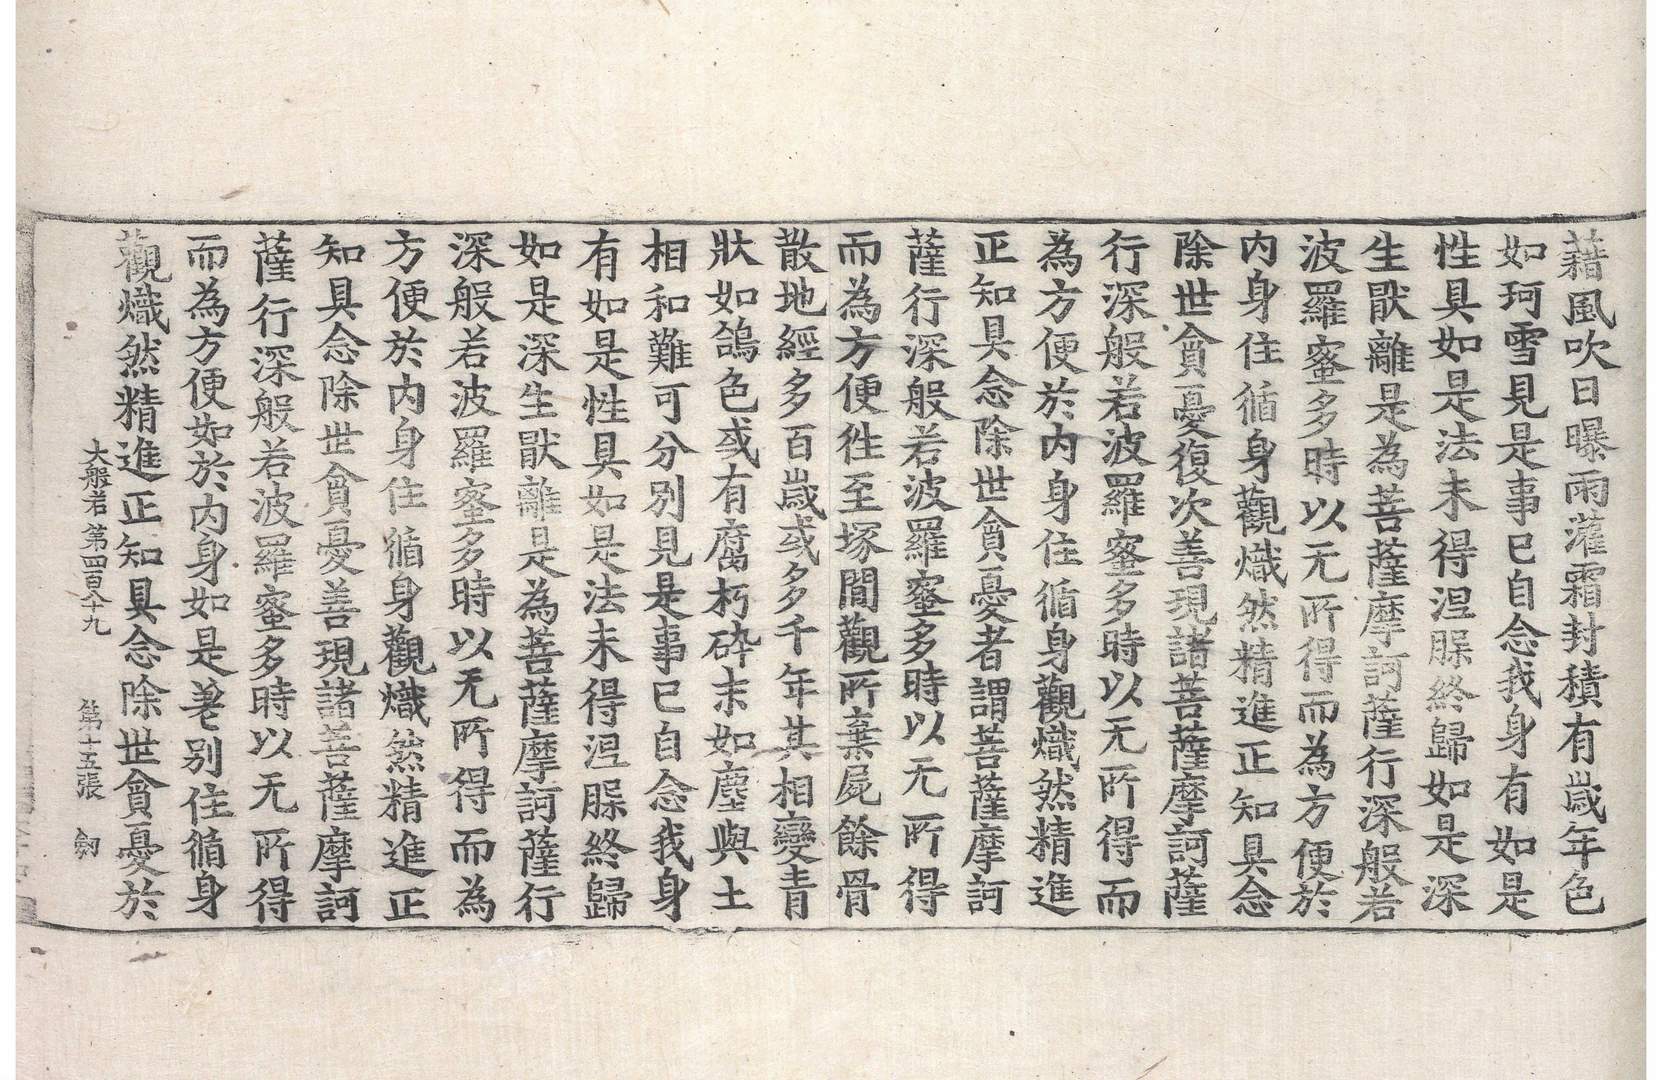 藉風吹日曝雨灌霜封積有歲年色
如珂雪見是事已自念我身有如是
性具如是法未得涅槃終歸如是深
生猒離是為菩薩摩訶薩行深般若
波羅蜜多時以无所得而為方便於
内身住循身觀熾然精進正知具念
除世貪憂復次善現諸菩薩摩訶薩
行深般若波羅蜜多時以无所得而
為方便於内身住循身觀熾然精進
正知具念除世貪憂者謂菩薩摩訶
薩行深般若波羅蜜多時以无所得
而為方便徃至塚間觀所棄屍餘骨
散地經多百歲或多千年其相變青
狀如鴿色或有腐朽碎末如塵與土
相和難可分別見是事已自念我身
有如是性具如是法未得涅槃終歸
如是深生猒離是為菩薩摩訶薩行
深般若波羅蜜多時以无所得而為
方便於内身住循身觀熾然精進正
知具念除世貪憂善現諸菩薩摩訶
薩行深般若波羅蜜多時以无所得
而為方便如於内身如是差別住循身
觀熾然精進正知具念除世貪憂於
大般若第四百八十九 第十五張 劒